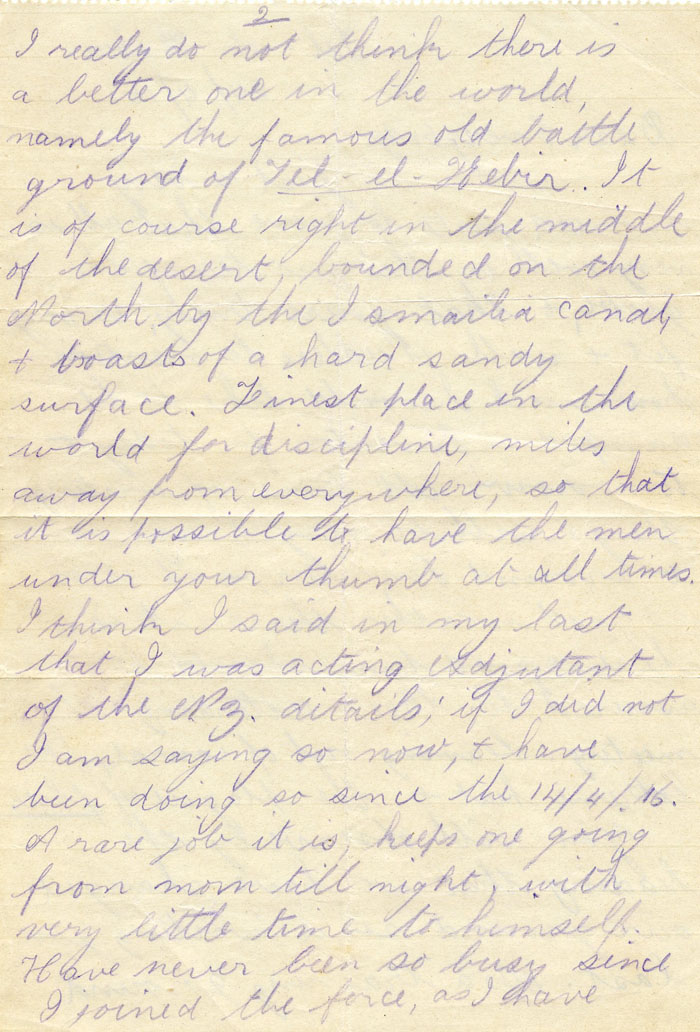 2
I really do not think there is
a better one in the world,
namely the famous old battle
ground of Tel-el-Kebir. It
is of course right in the middle
of the desert, bounded on the
North by the Ismailia canal,
+ boasts of a hard sandy
surface. Finest place in the
world for discipline, miles
away from everywhere, so that
it is possible to have the men
under your thumb at all times.
I think I said in my last
that I was acting Adjutant
of the N.Z. ditails; if I did not
I am saying so now, + have
been doing so since the 14/4/.16.
A rare job it is, keeps one going
from morn till night, with
very little time to himself.
Have never been so busy since
I joined the force, as I have